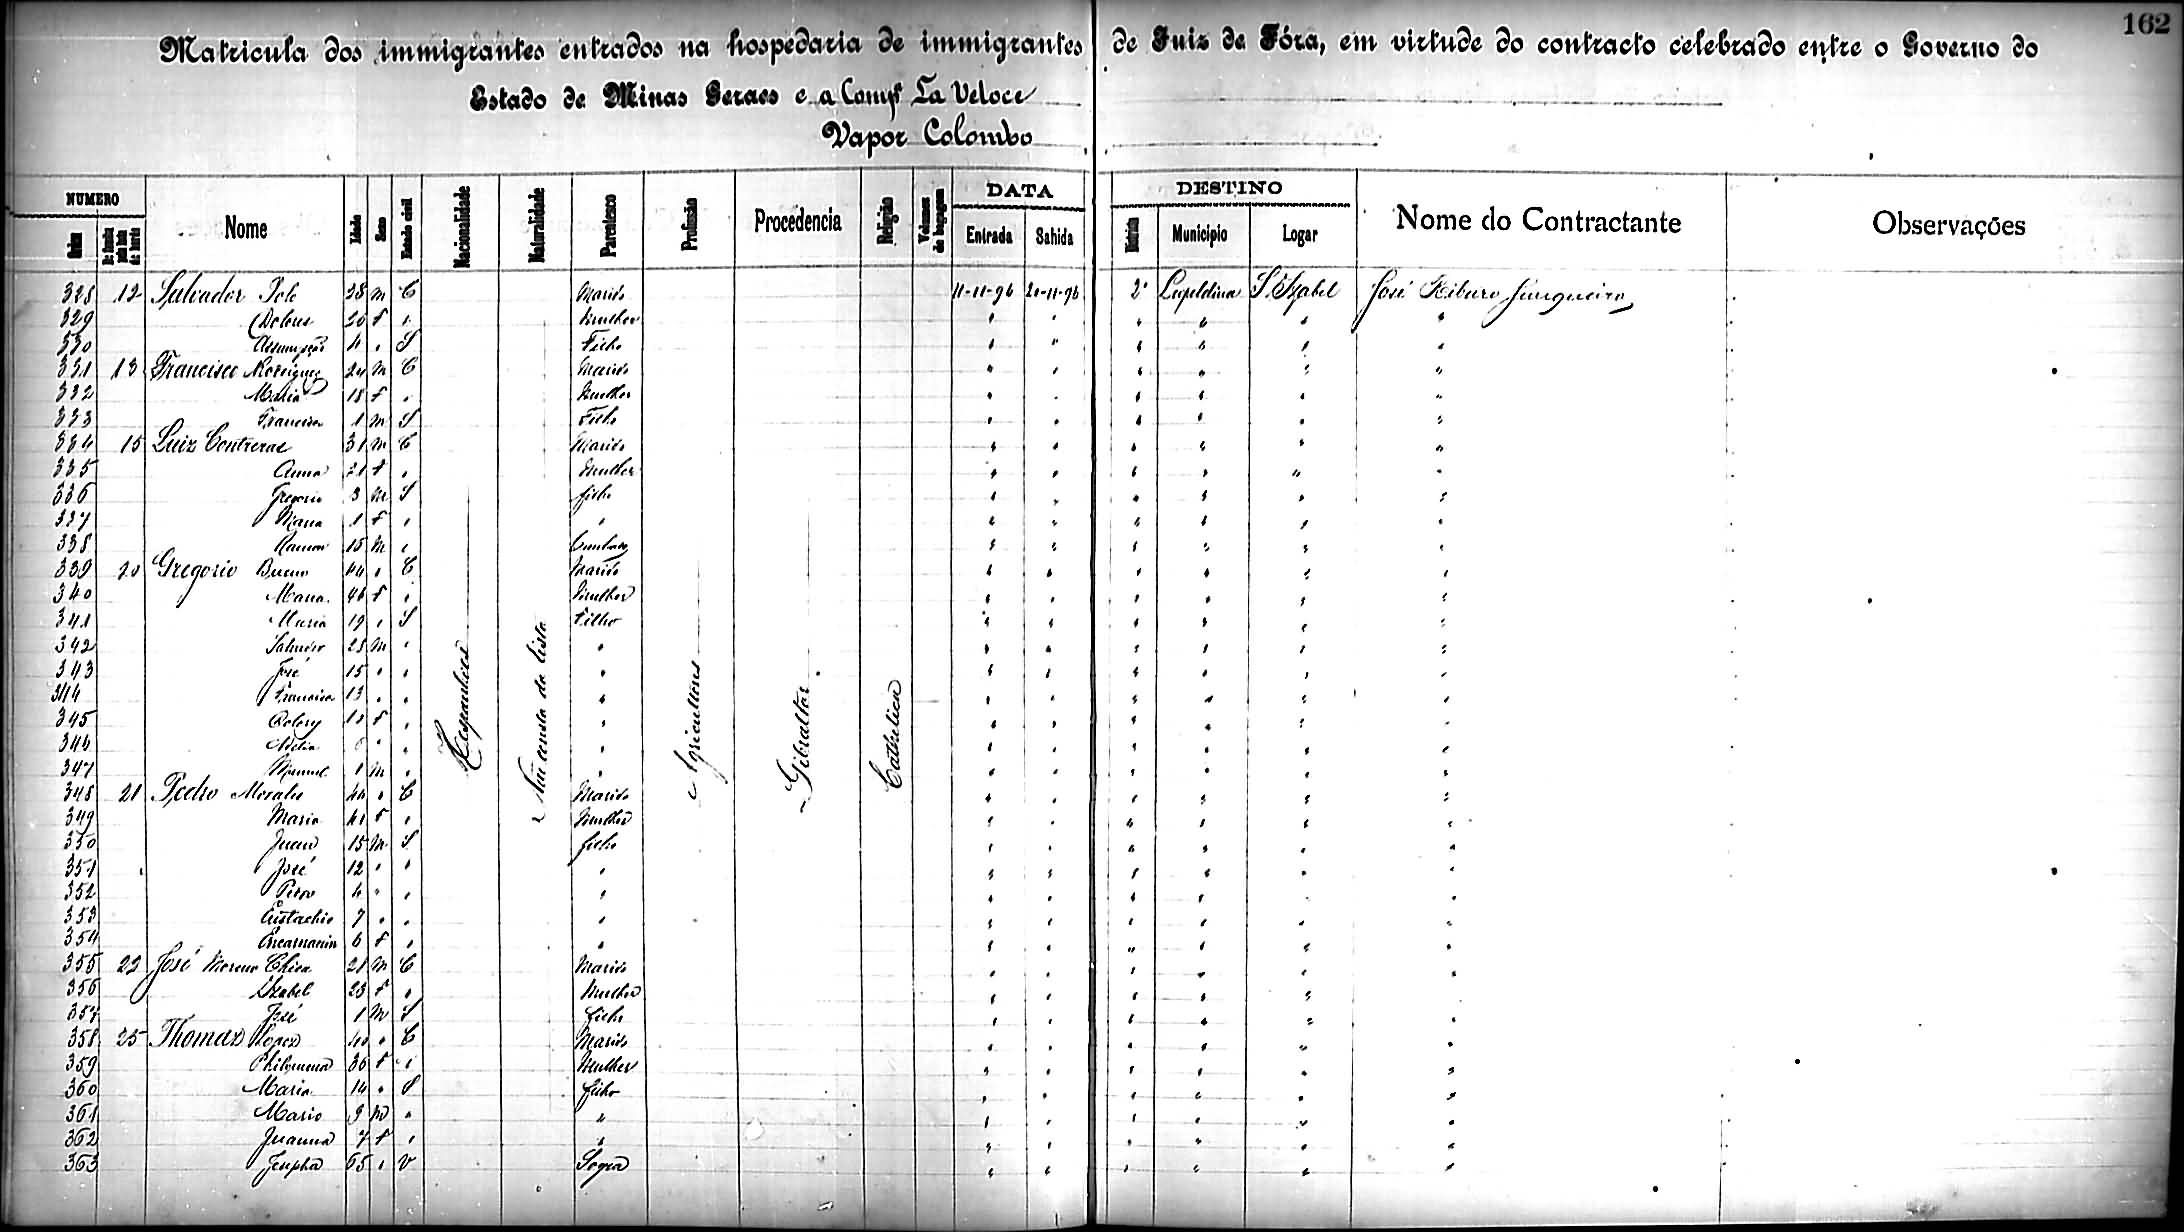 162
Matricula dos immigrantes entrados na hospedaria de immigrantes de Juiz de Fóra, em virtude do contracto celebrado entre o Governo do
Estado de Minas Geraes e a Compª La Veloce
Vapor Colombo
NUMERO Nome Idade Sexo Estado civil Nacionalidade Naturalidade Parentesco Profissão Procedencia Religião Volumes de bagagem DATA DESTINO Nome do Contractante Observações
Ordem Entrada Sahida Districto Municipio Logar
328 12 Salvador Polo 28 M C Marido 11-11-96 20-11-96 2º Leopoldina S. Izabel José Ribeiro Junqueira
329 Dolores 20 F " Mulher " " " " " "
330 Assumpção 4 " S Filho " " " " " "
331 13 Francisco Rodrigues 24 M C Marido " " " " " "
332 Maria 18 F " Mulher " " " " " "
333 Francisco 1 M S Filho " " " " " "
334 15 Luiz Contreras 31 M C Marido " " " " " "
335 Anna 21 F " Mulher " " " " " "
336 Gregorio 3 M S filho " " " " " "
337 Maria 1 F " " " " " " " "
338 Ramon 15 M " Cunhado " " " " " "
339 20 Gregorio Bueno 44 " C Marido " " " " " "
340 Maria 46 F " Mulher " " " " " "
341 Maria 19 " S Filho " " " " " "
342 Salvador 28 M " " " " " " " "
343 José 15 " " " " " " " " "
344 Francisco 13 " " " " " " " " "
345 F " " " " " " " "
346 " " " " " " " " "
347 Manuel 1 M " " " " " " " "
Hespanhóes Não consta da lista Agricultores Gibraltar Catholica
348 21 Pedro Morales 44 " C Marido " " " " " "
349 Maria 41 F " Mulher " " " " " "
350 Juan 15 M S filho " " " " " "
351 José 12 " " " " " " " " "
352 Pedro 4 " " " " " " " " "
353 Eustachio 7 " " " " " " " " "
354 Encarnacion 6 F " " " " " " " "
355 22 José Moreno Chica 28 M C Marido " " " " " "
356 Izabel 23 F " Mulher " " " " " "
357 José 1 M S filho " " " " " "
358 25 Thomaz Lopes 40 " C Marido " " " " " "
359 Philomena 36 F " Mulher " " " " " "
360 Maria 14 " S filho " " " " " "
361 Mario 9 M " " " " " " " "
362 Juanna 7 F " " " " " " " "
363 Josepha 65 " V Sogra " " " " " "